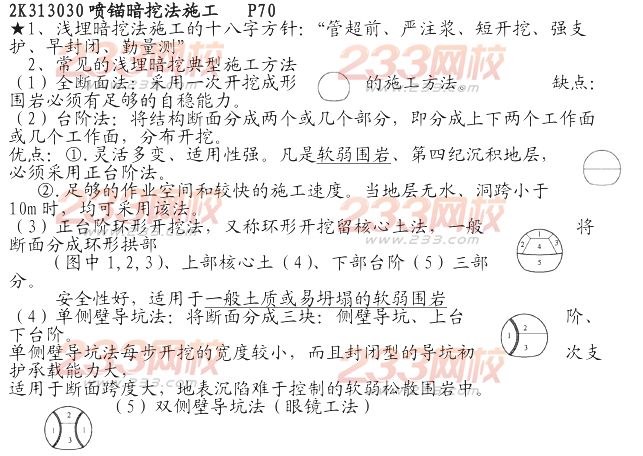 2K313030喷锚暗挖法施工 P70
★1、浅埋暗挖法施工的十八字方针：“管超前、严注浆、短开挖、强支
护、早封闭、勤量测”
2、常见的浅埋暗挖典型施工方法
（1）全断面法：采用一次开挖成形 的施工方法。 缺点：
围岩必须有足够的自稳能力。
（2）台阶法：将结构断面分成两个或几个部分，即分成上下两个工作面
或几个工作面，分布开挖。
优点：①.灵活多变、适用性强。凡是软弱围岩、第四纪沉积地层，
必须采用正台阶法。
②.足够的作业空间和较快的施工速度。当地层无水、洞跨小于
10m时，均可采用该法。
（3）正台阶环形开挖法，又称环形开挖留核心土法，一般 将
断面分成环形拱部
1
2 4 3
5
（图中1,2,3）、上部核心土（4）、下部台阶（5）三部
分。
安全性好，适用于一般土质或易坍塌的软弱围岩
（4）单侧壁导坑法：将断面分成三块：侧壁导坑、上台 阶、
下台阶。
1 2
3
单侧壁导坑法每步开挖的宽度较小，而且封闭型的导坑初 次支
护承载能力大，
适用于断面跨度大，地表沉陷难于控制的软弱松散围岩中。
（5）双侧壁导坑法（眼镜工法）
2
1 1
3
233网校
www.233.com